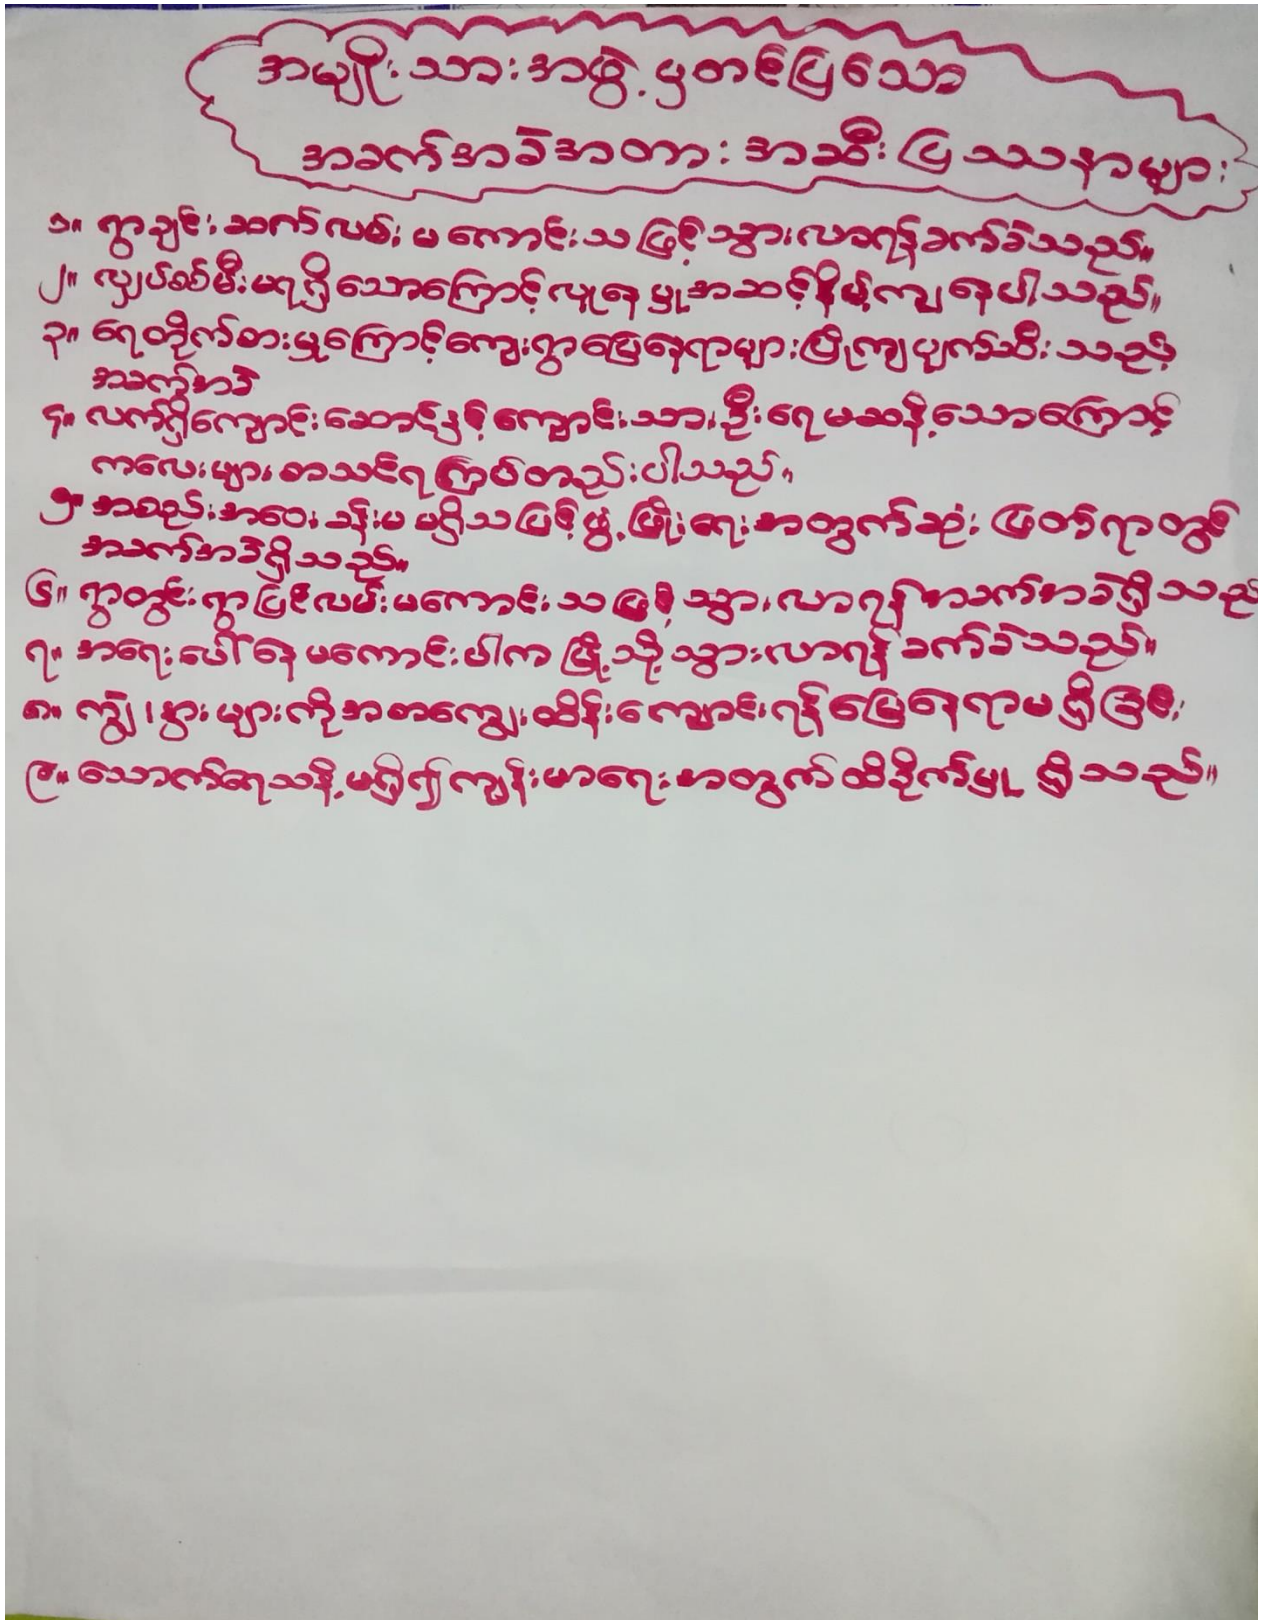 အမျိုးသားအဖွဲ့မှတင်ပြသော
အခက်အခဲအတားအဆီးပြဿနာများ
၁။ ရွာချင်းဆက်လမ်းမကောင်းသဖြင့်သွားလာရန်ခက်ခဲသည်။
၂။ လျှပ်စစ်မီးမရရှိသောကြောင့်လူနေမှုအဆင့်နိမ့်ကျနေပါသည်။
၃။ ရေတိုက်စားမှုကြောင့်ကျေးရွာမြေနေရာများပြိုကျပျက်ဆီးသည့်
အခက်အခဲ
၄။ လက်ရှိကျောင်းဆောင်နှင့်ကျောင်းသားဦးရေမဆန့်သောကြောင့်
ကလေးများစာသင်ရကြပ်တည်းပါသည်။
၅။ အစည်းအဝေးခန်းမမရှိသဖြင့်ဖွံ့ဖြိုးရေးအတွက်ဆုံးဖြတ်ရာတွင်
အခက်အခဲရှိသည်။
၆။ ရွာတွင်းရွာပြင်လမ်းမကောင်းသဖြင့်သွားလာရန်အခက်အခဲရှိသည်
၇။ အရေးပေါ်နေမကောင်းပါကမြို့သို့သွားလာရန်ခက်ခဲသည်။
၈။ ကျွဲ၊နွားများကိုအစာကျွေးထိန်းကျောင်းရန်မြေနေရာမရှိခြင်း
၉။ သောက်ရေသန့်မရှိ၍ကျန်းမာရေးအတွက်ထိခိုက်မှုရှိသည်။